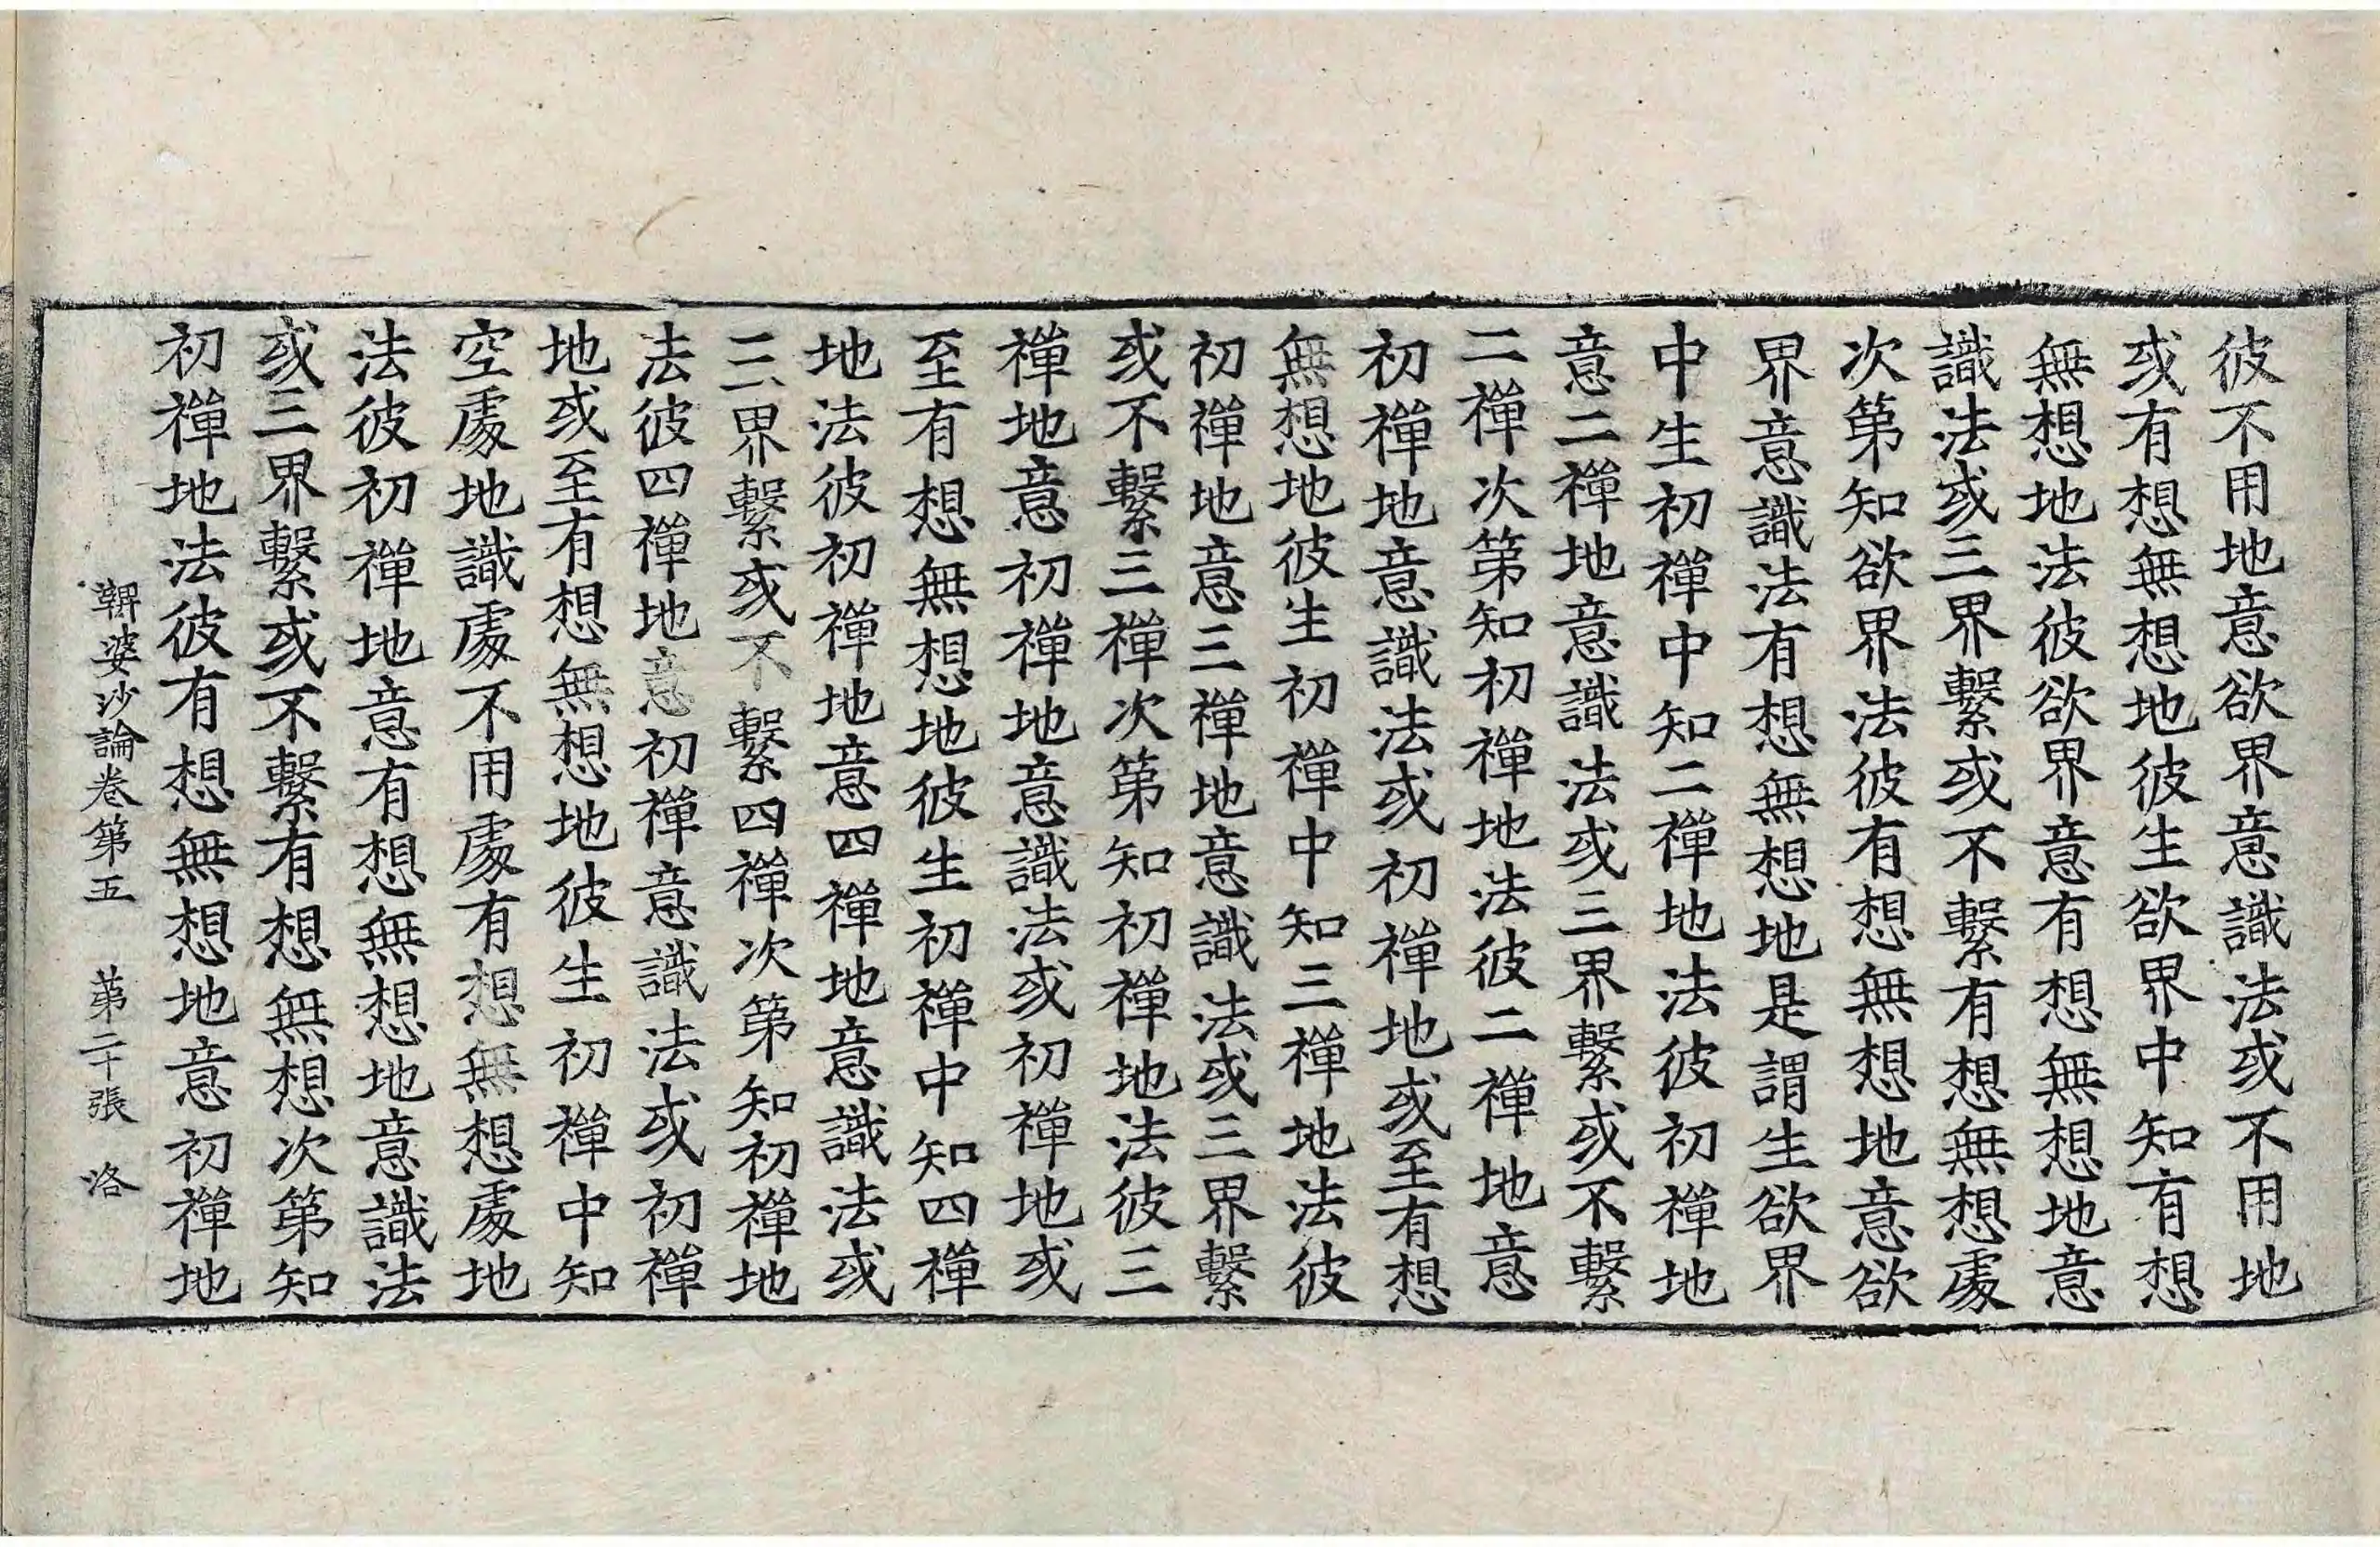 彼不用地意欲界意識法或不用地
或有想無想地彼生欲界中知有想
無想地法彼欲界意有想無想地意
識法或三界繫或不繫有想無想處
次第知欲界法彼有想無想地意欲
界意識法有想無想地是謂生欲界
中生初禪中知二禪地法彼初禪地
意二禪地意識法或三界繫或不繫
二禪次第知初禪地法彼二禪地意
初禪地意識法或初禪地或至有想
無想地彼生初禪中知三禪地法彼
初禪地意三禪地意識法或三界繫
或不繫三禪次第知初禪地法彼三
禪地意初禪地意識法或初禪地或
至有想無想地彼生初禪中知四禪
地法彼初禪地意四禪地意識法或
三界繫或不繫四禪次第知初禪地
法彼四禪地意初禪意識法或初禪
地或至有想無想地彼生初禪中知
空處地識處不用處有想無想處地
法彼初禪地意有想無想地意識法
或三界繫或不繫有想無想次第知
初禪地法彼有想無想地意初禪地
鞞婆沙論卷第五 第二十張 洛